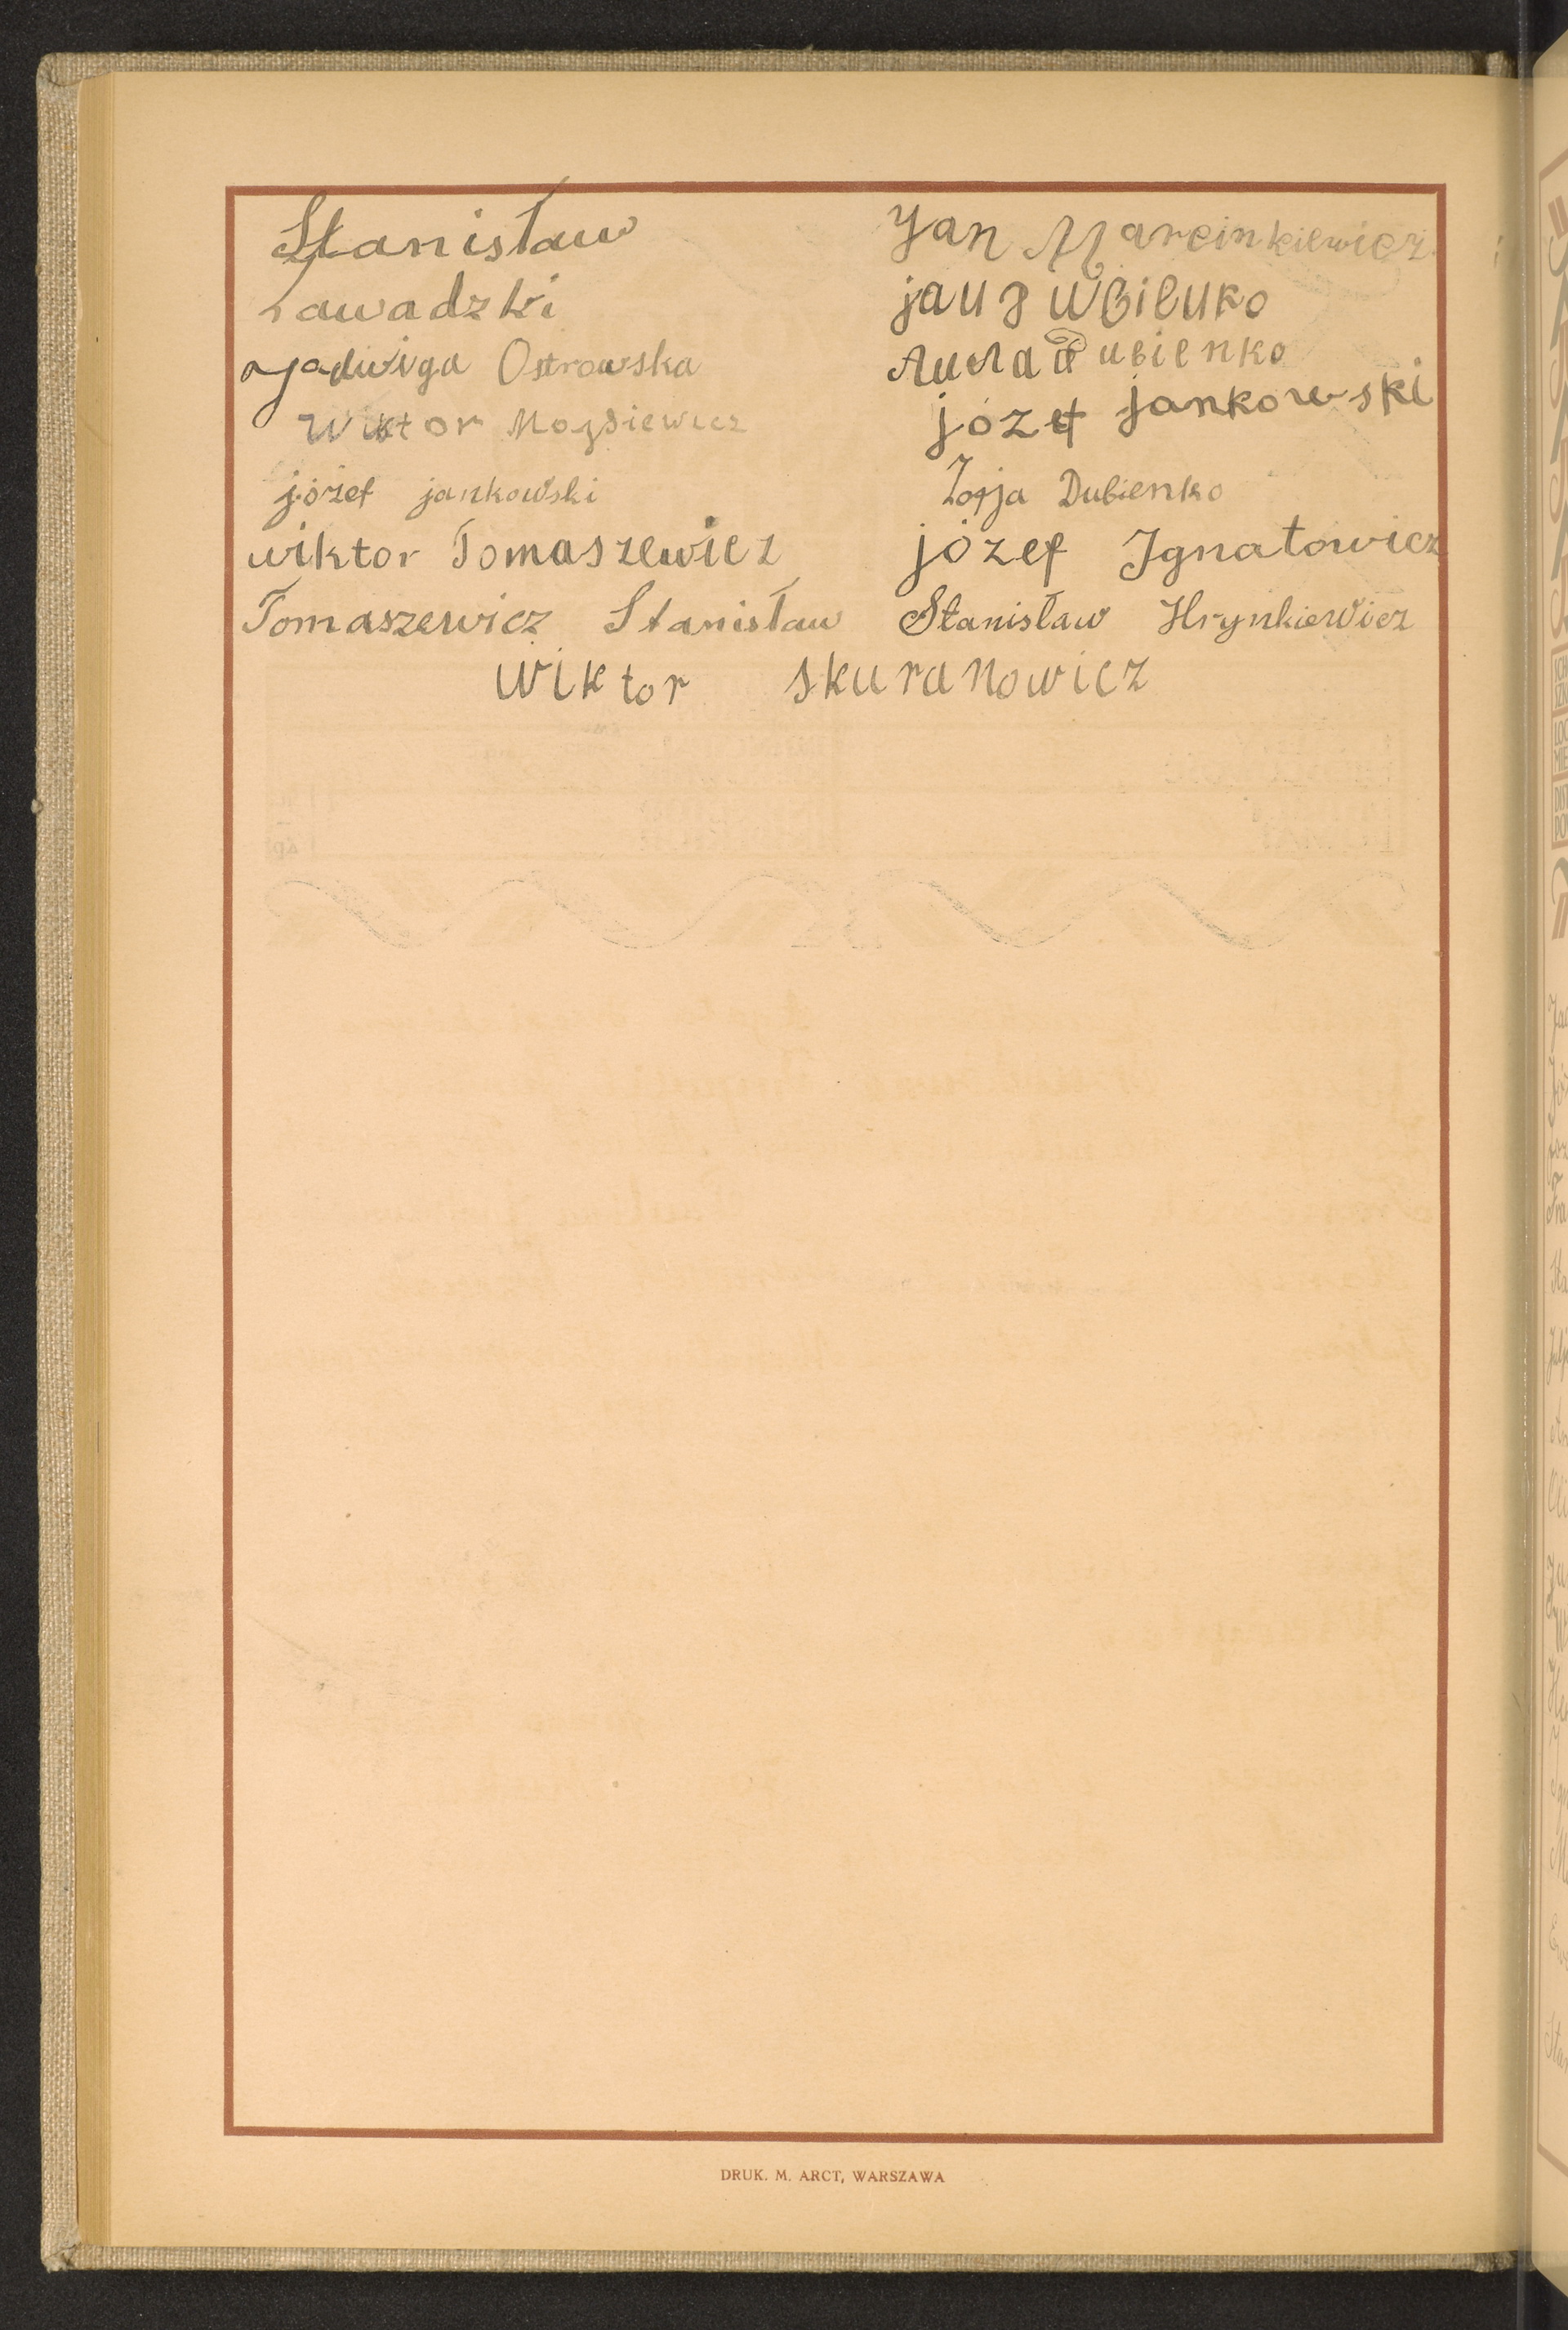 Stanisław
Zawadzki
Jadwiga Ostrowska
Wiktor Mojsiewicz
józef jankowski
wiktor Tomaszewicz
Tomaszewicz Stanisław
Jan Marcinkiewicz
józef jankowski
Zofja Dubienko
józef Ignatowicz
Stanisław Hrynkiewicz
Wiktor skuranowicz
DRUK. M. ARCT, WARSZAWA